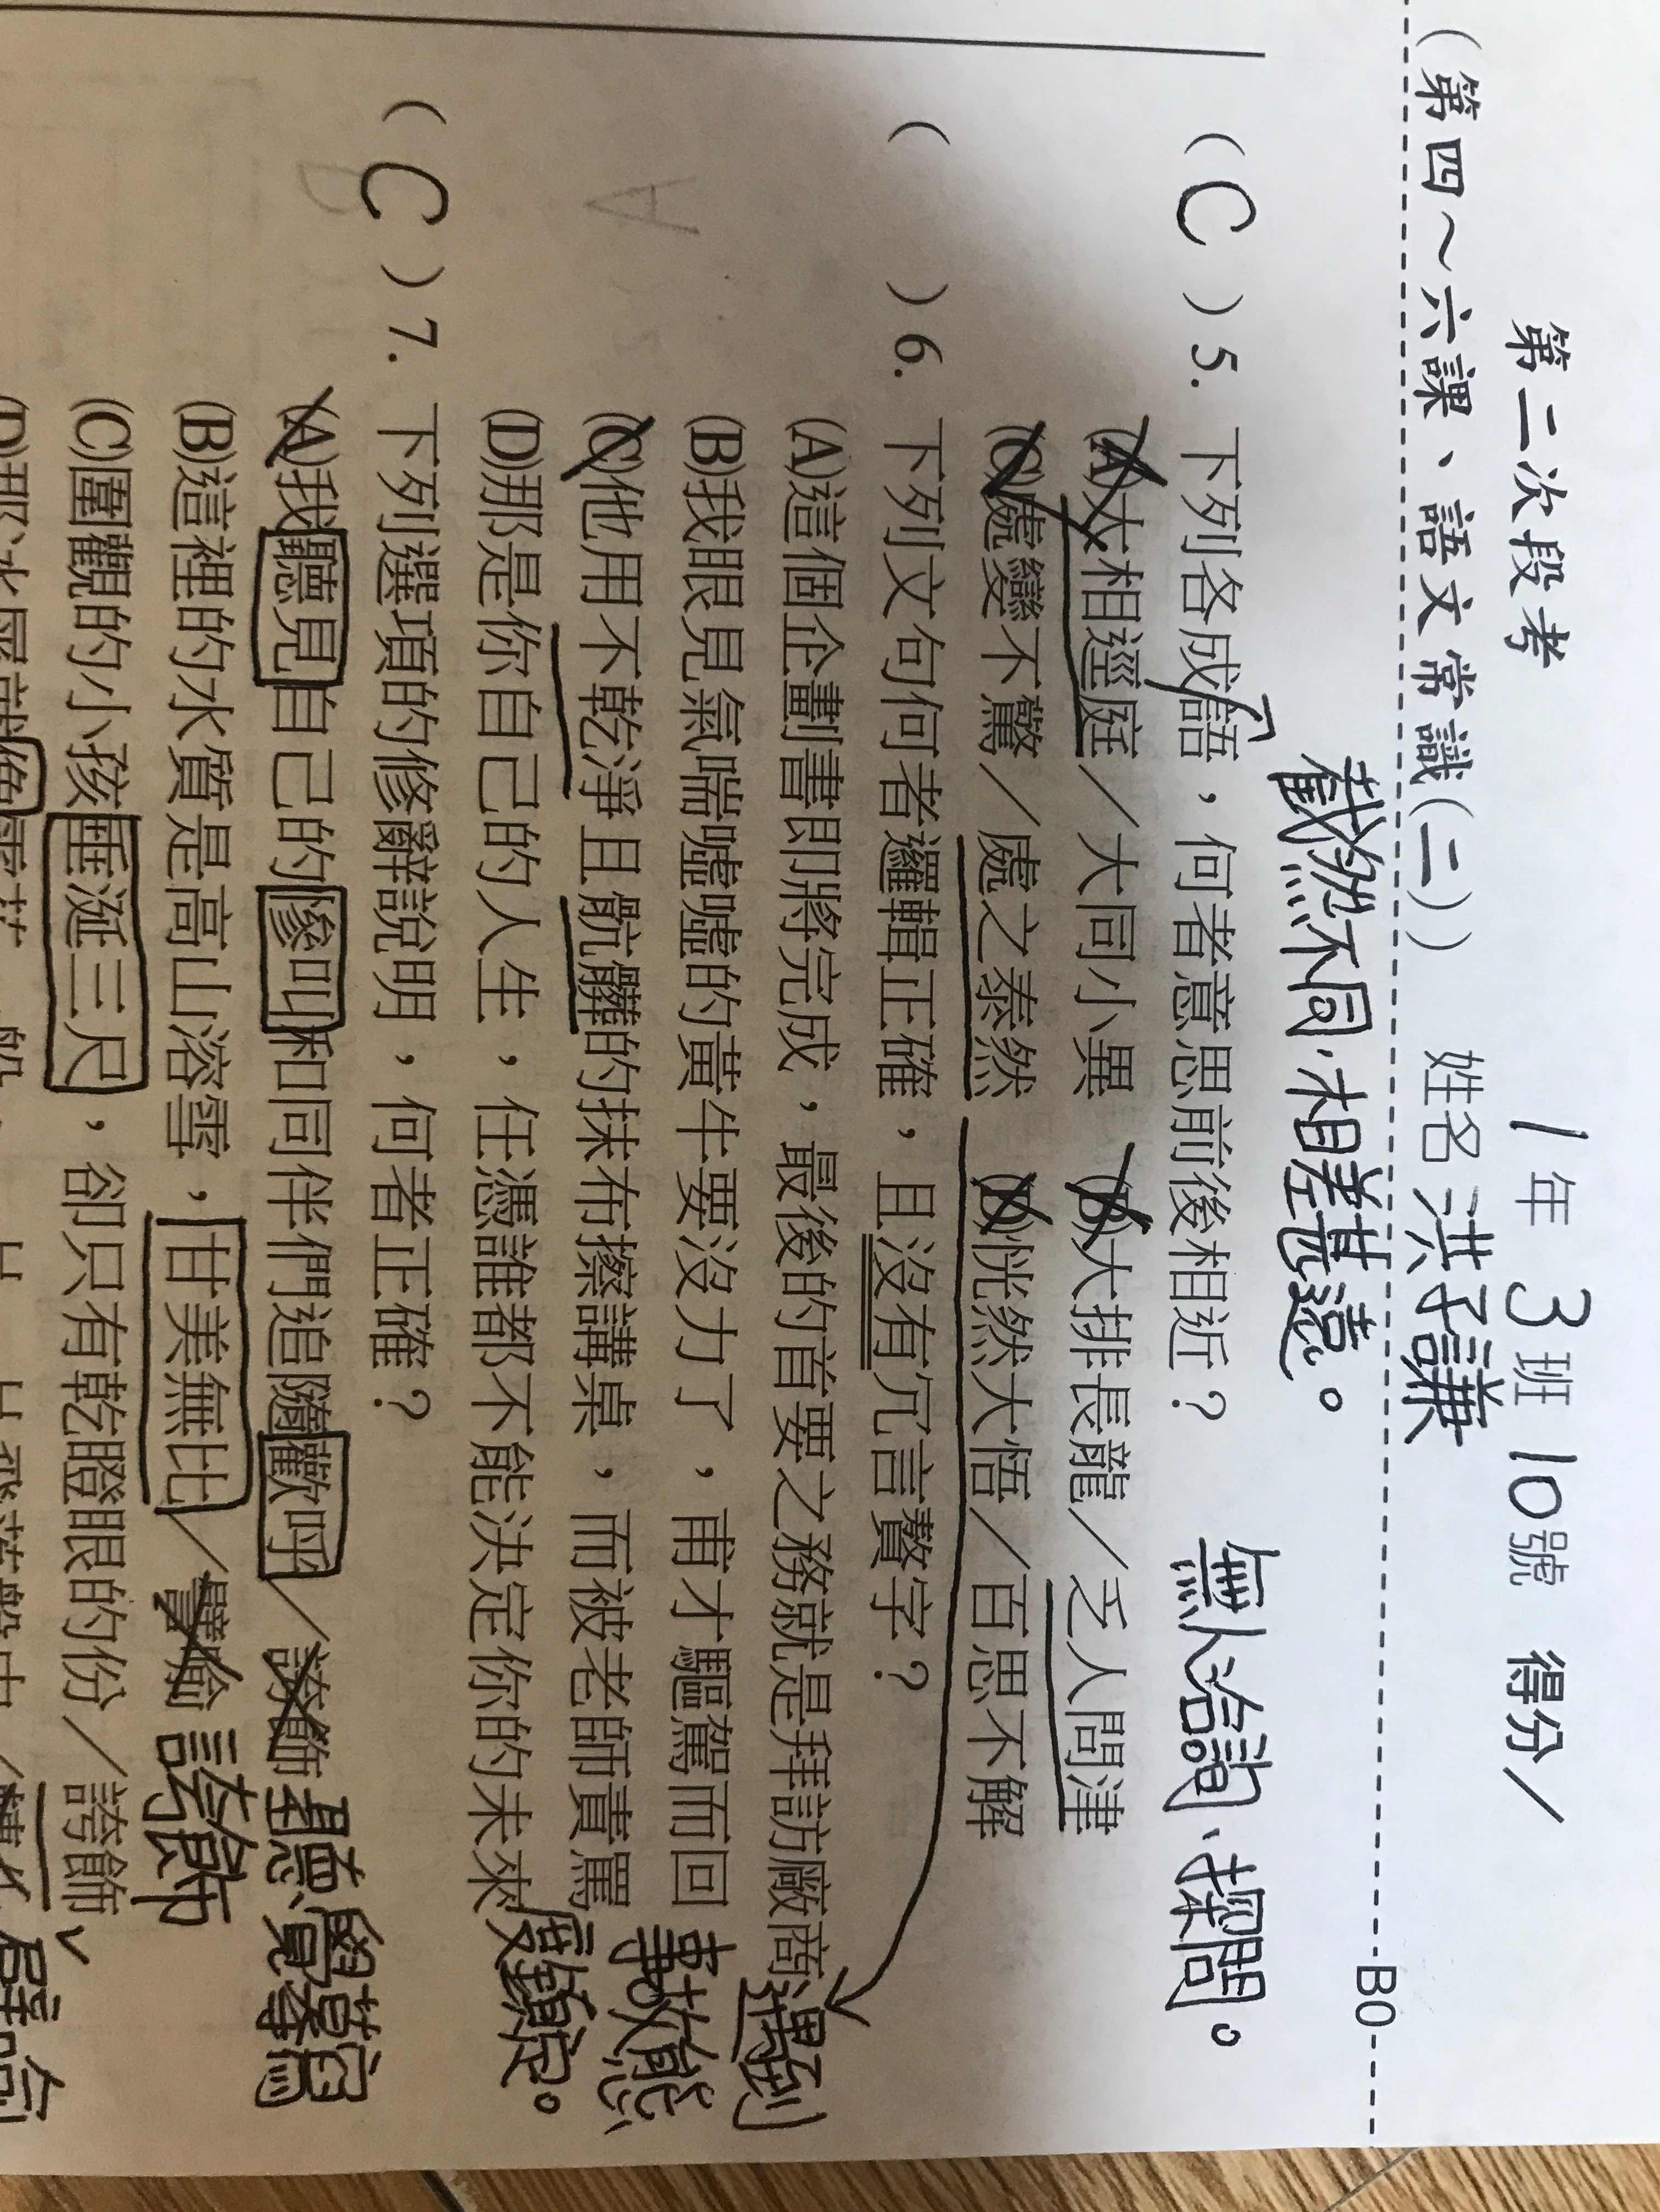 第二次段考
1年3班10號 得分／
(第四～六課、語文常識(二)) 姓名 洪子謙
B0
截然不同.相差甚遠。
無人洽詢、探問。
( C ) 5. 下列各成語，何者意思前後相近？
(A)大相逕庭／大同小異 (B)大排長龍／乏人問津
(C)處變不驚／處之泰然 (D)恍然大悟／百思不解
( ) 6. 下列文句何者邏輯正確，且沒有冗言贅字？
(A)這個企劃書即將完成，最後的首要之務就是拜訪廠商
(B)我眼見氣喘噓噓的黃牛要沒力了，甫才驅駕而回
(C)他用不乾淨且骯髒的抹布擦講桌，而被老師責罵
(D)那是你自己的人生，任憑誰都不能決定你的未來
A
( C ) 7. 下列選項的修辭說明，何者正確？
(A)我聽見自己的慘叫和同伴們追隨歡呼／誇飾 聽覺摹寫
(B)這裡的水質是高山溶雪，甘美無比／譬喻 誇飾
(C)圍觀的小孩垂涎三尺，卻只有乾瞪眼的份／誇飾
B